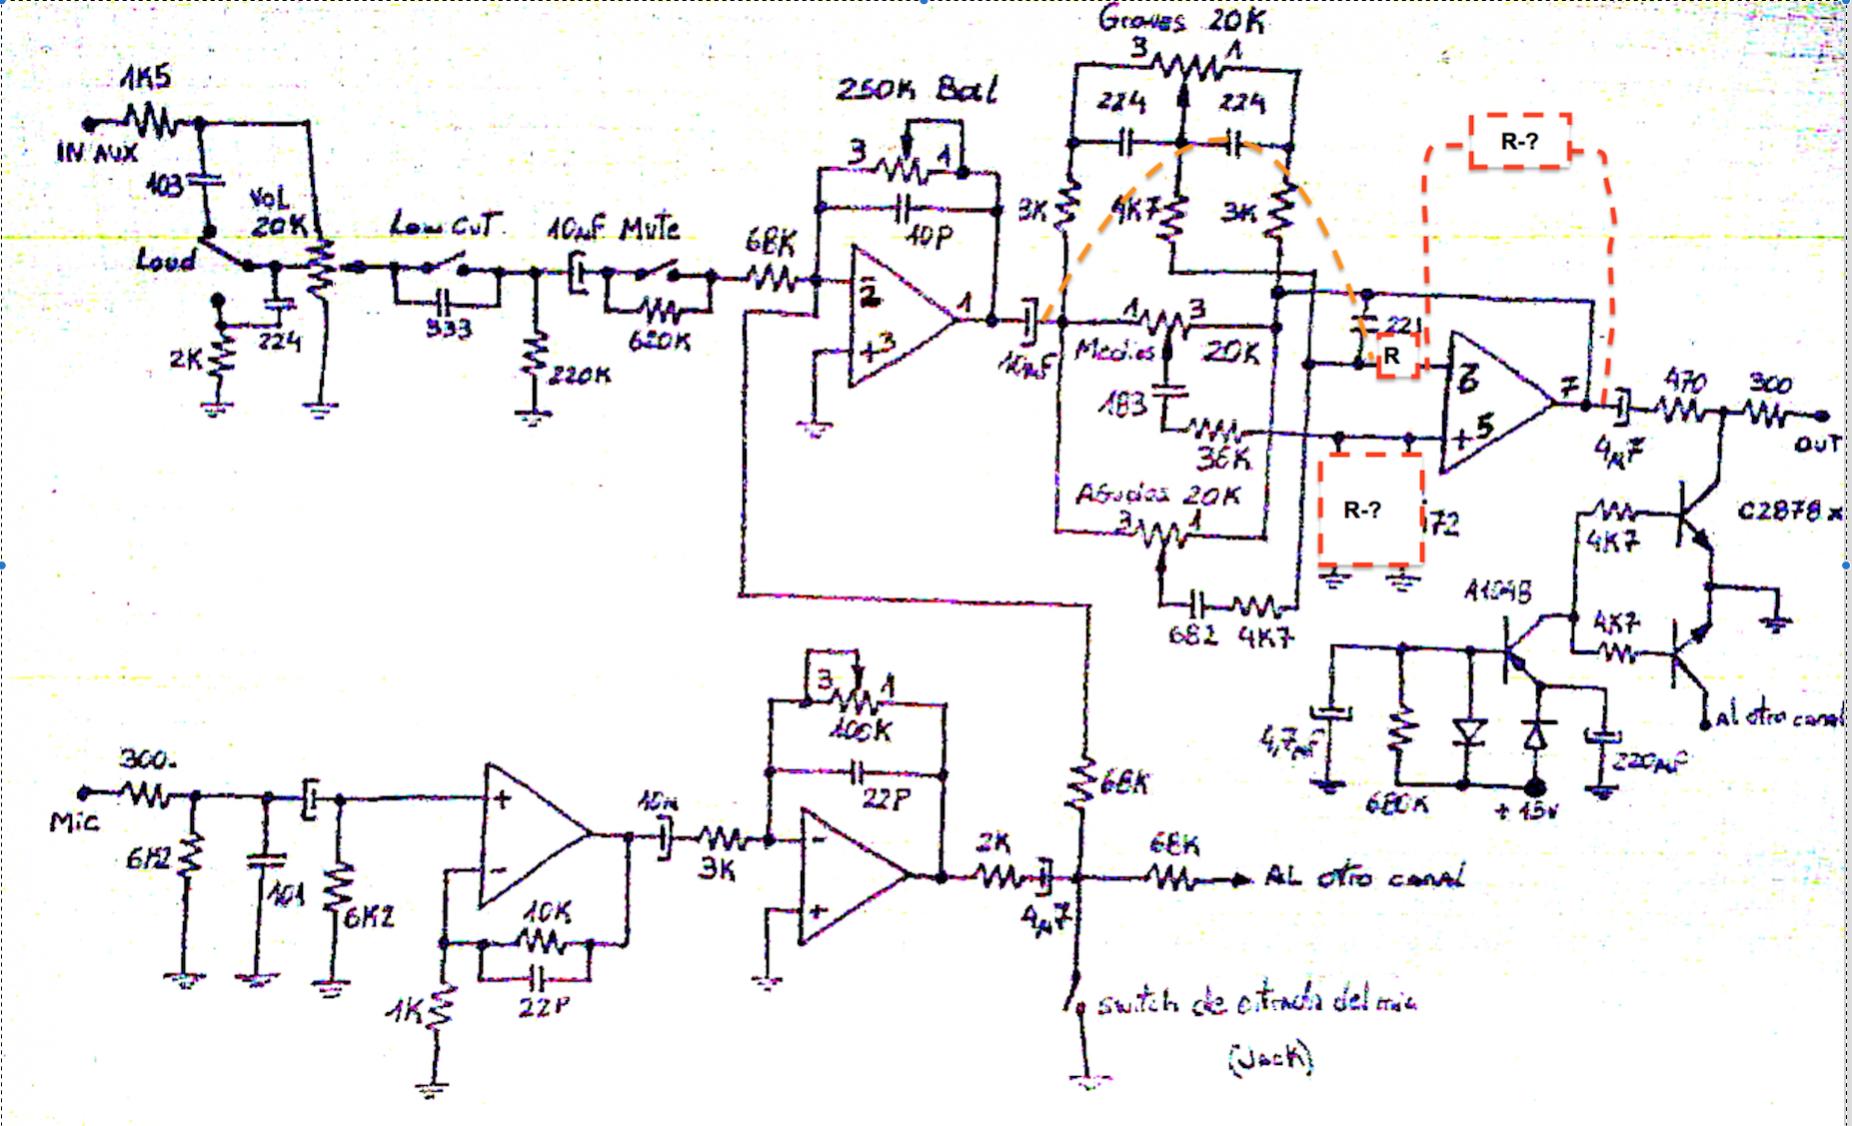 Graves 20K
3
1
1K5
250K Bal
224
224
R-?
IN AUX
3
1
103
Vol
20K
Low CuT.
10µF
Mute
68K
10P
3K
4K7
3K
Loud
2
1
1
3
221
333
620K
+3
Medios
20K
R
6
7
470
300
2K
224
220K
10µF
183
+5
4µ7
OUT
36K
Agudos 20K
R-?
72
C2878 x
3
1
4K7
A1049B
682
4K7
4K7
3
1
100K
Al otro canal
300
4,7µF
220µF
68K
22P
680K
+15v
Mic
+
10µ
6K2
-
3K
-
2K
68K
AL otro canal
101
6K2
10K
+
4µ7
1K
22P
Switch de entrada del mic
(Jack)